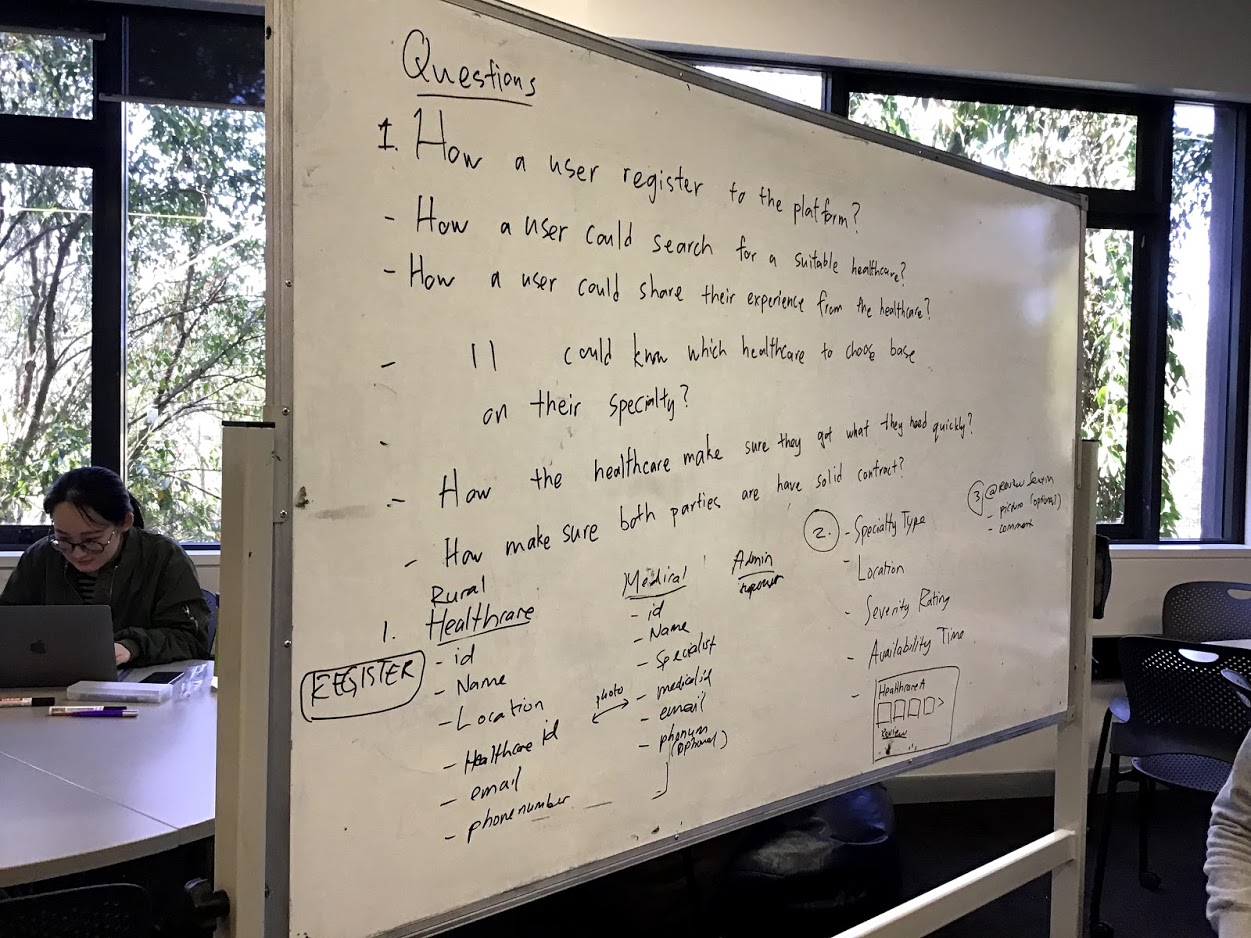 Questions
1. How a user register to the platform?
- How a user could search for a suitable healthcare?
- How a user could share their experience from the healthcare?
- 11 could know which healthcare to choose base
on their specialty?
-
- How the healthcare make sure they got what they need quickly?
- How make sure both parties are have solid contract?
1. Rural
Healthcare
REGISTER
- id
- Name
- Location
- Healthcare id
- email
- phone number
photo
Medical
- id
- Name
- Specialist
- medical id
- email
- phonenum
(optional)
Admin
2. - Specialty Type
- Location
- Severity Rating
- Availability Time
-
Healthcare A
Review
3. @ Review Section
- picture (optional)
- comment